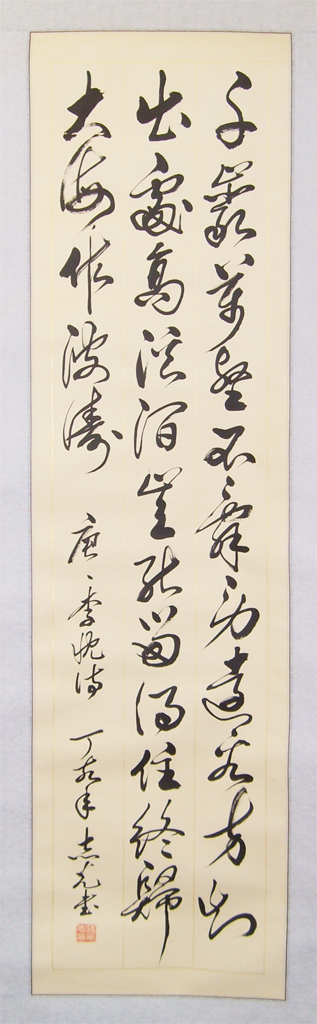 千巖萬壑不辭勞遠看方知
出處高溪澗豈能留得住終歸
大海作波濤 唐 李忱詩 丁亥年 書